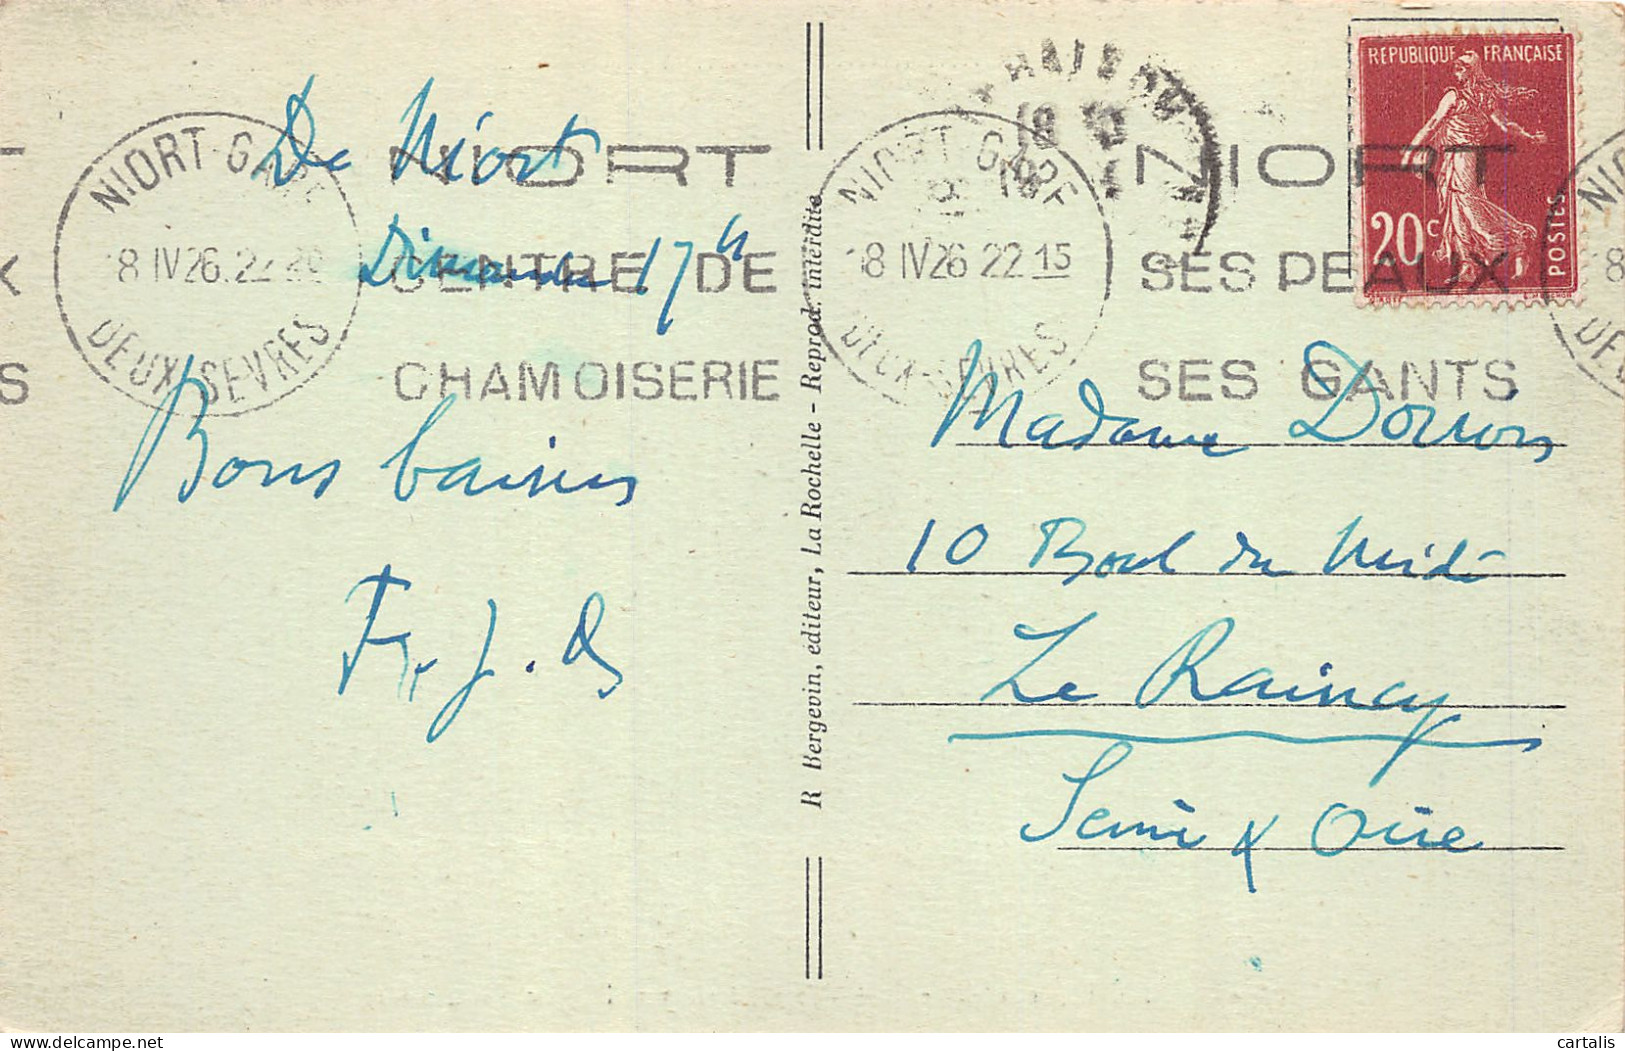 De Niort
Dimanche 17h
Bons baisers
NIORT-GARE
8 IV 26. 22
DEUX-SEVRES
NIORT
CENTRE DE
CHAMOISERIE
R Bergevin, éditeur, La Rochelle - Reprod. interdite
NIORT-GARE
18 IV 26 22 15
DEUX-SEVRES
NIORT
SES PEAUX
SES GANTS
REPUBLIQUE FRANÇAISE
20c
POSTES
Madame
10 Boul du Midi
Le Raincy
Seine & Oise
cartalis